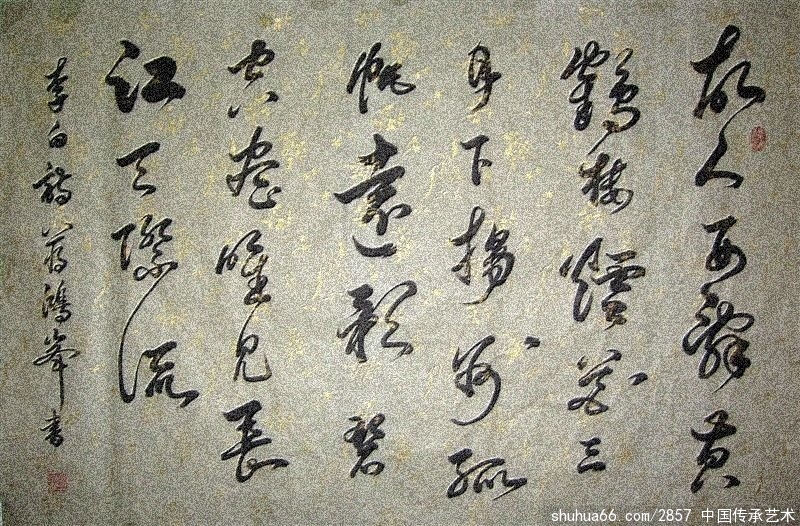 故人西辞黄
鹤楼烟花三
月下扬州孤
帆远影碧
空尽唯见长
江天际流
李白诗 蒋鸿峰书
shuhua66.com/2857 中国传承艺术